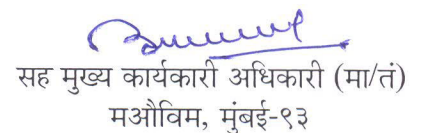 सह मुख्य कार्यकारी अधिकारी (मा/तं)
मऔविम, मुंबई-९३